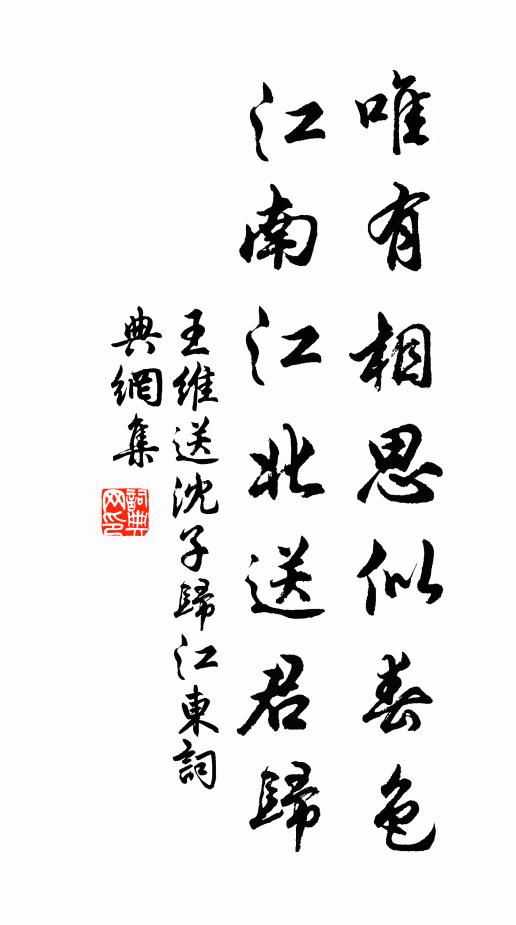 唯有相思似春色
江南江北送君歸
王維送沈子歸江東詞
典網集
詞典網印